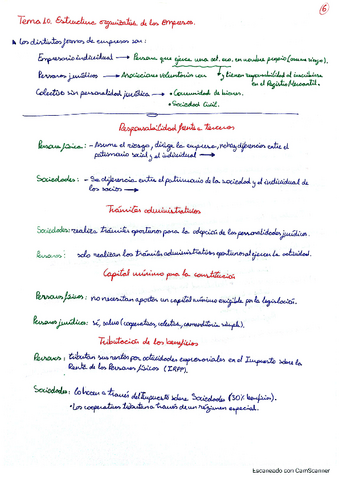 6
Tema 10. Estructura organizativa de las empresas.
Las distintas formas de empresas son:
Empresario individual → Persona que ejerce una act. eco. en nombre propio (asume riesgo).
Personas jurídicas → Asociaciones voluntarias con y tienen responsabilidad al inscribirse
en el Registro Mercantil.
Colectivo sin personalidad jurídica → • Comunidad de bienes.
• Sociedad Civil.
Responsabilidad frente a terceros
Persona física: - Asume el riesgo, dirige la empresa, no hay diferencias entre el
patrimonio social y el individual →
Sociedades: - Se diferencia entre el patrimonio de la sociedad y el individual de
los socios →
Trámites administrativos
Sociedades: realiza trámites oportunos para la adopción de las personalidades jurídicas.
Personas: solo realizan los trámites administrativos oportunos al ejercer la actividad.
Capital mínimo para la constitución
Personas físicas: no necesitan aportar un capital mínimo exigible por la legislación.
Personas jurídicas: sí, salvo (cooperativas, colectiva, comanditaria simple).
Tributación de los beneficios
Personas: tributan sus rentas por actividades empresariales en el Impuesto sobre la
Renta de las Personas físicas (IRPF).
Sociedades: lo hacen a través del Impuesto sobre Sociedades (30% beneficios).
• Las cooperativas tributan a través de un régimen especial.
Escaneado con CamScanner